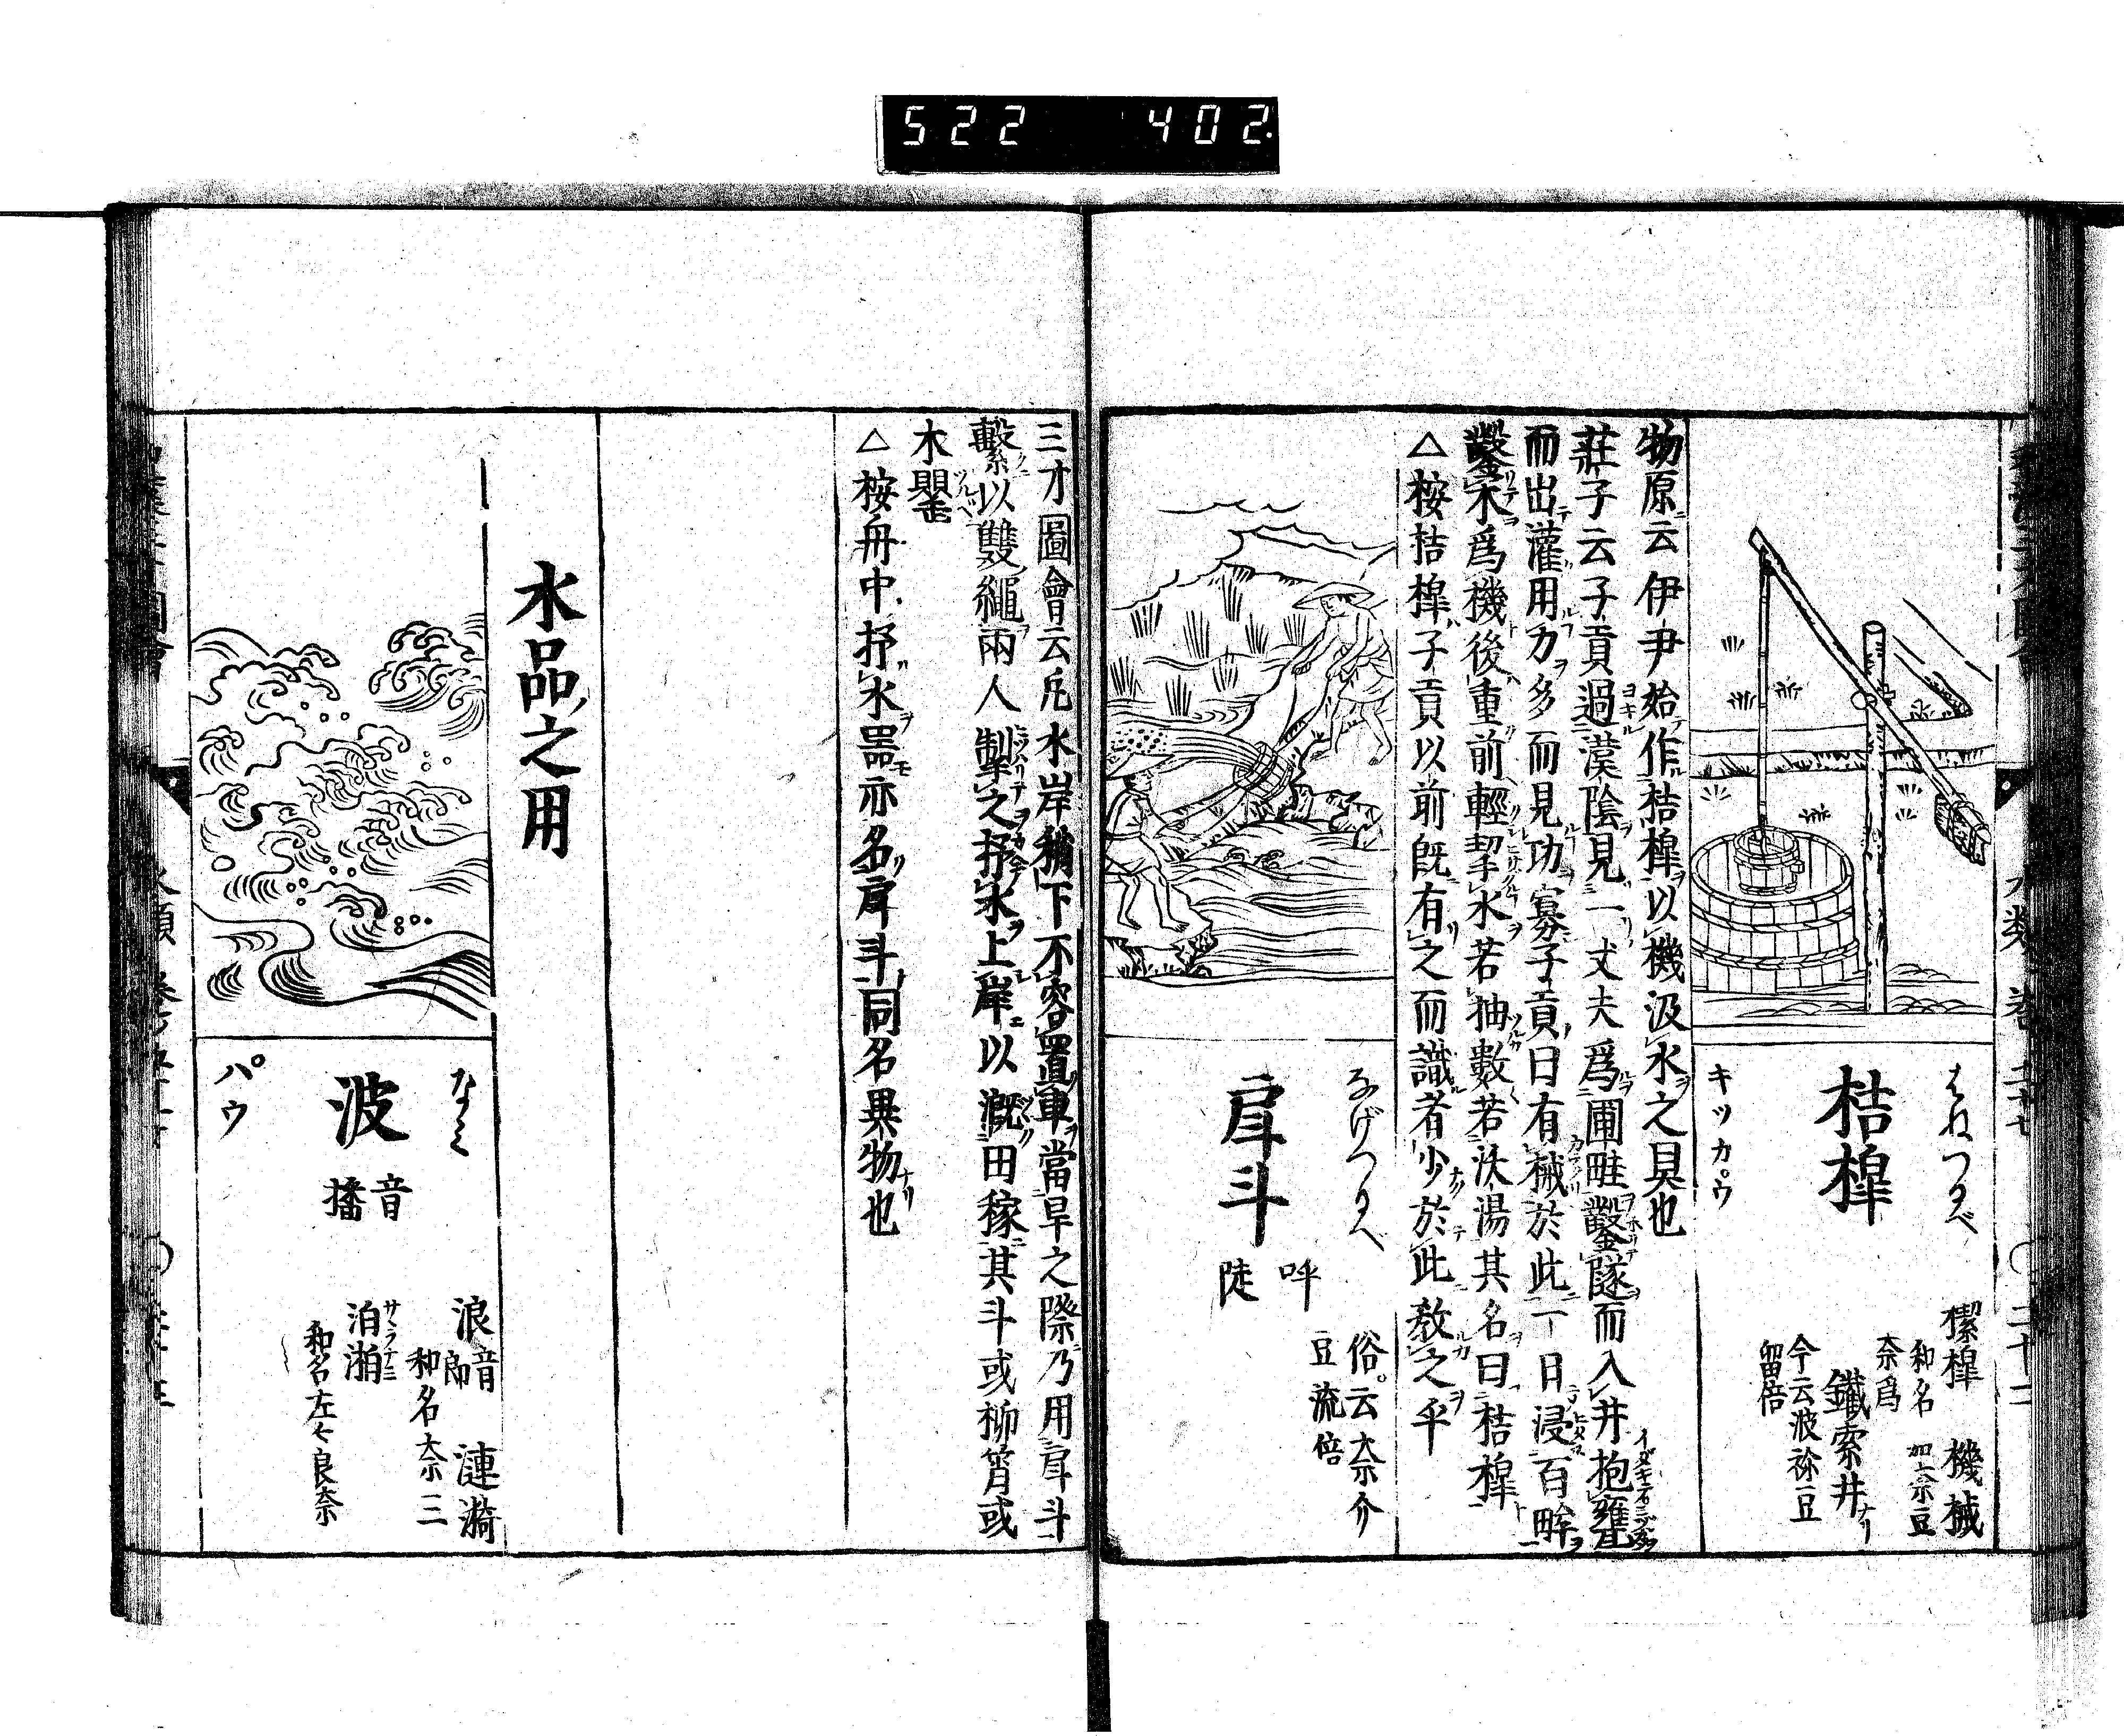 522 402
はねつるべ
桔槹
キツカ゜ウ
槔槹 機械
和名 加奈豆
奈爲
鐵索井ナリ
今云波祢豆
留倍
物原云伊尹始作桔槹以機汲水之具也
莊子云子貢過漢陰見一丈夫爲圃畦鑿隧而入井抱甕
而出灌用力多而見功寡子貢曰有械於此一日浸百畦
鑿木爲機後重前輕挈水若抽數若泆湯其名曰桔槹
△按桔槹子貢以前既有之而識者少於此教之乎
なげつるべ
戽斗
呼
陡
俗云奈介
豆流倍
三才圖會云凡水岸稍下不容置車當旱之際乃用戽斗
繫以雙繩兩人掣之抒水上岸以漑田稼其斗或柳筲或
木罌
△按舟中抒水噐亦名戽斗同名異物也
水品之用
なみ
波
音
播
パウ
浪 音郎
漣漪
和名奈三
泊湘 サヽラナミ
和名左々良奈